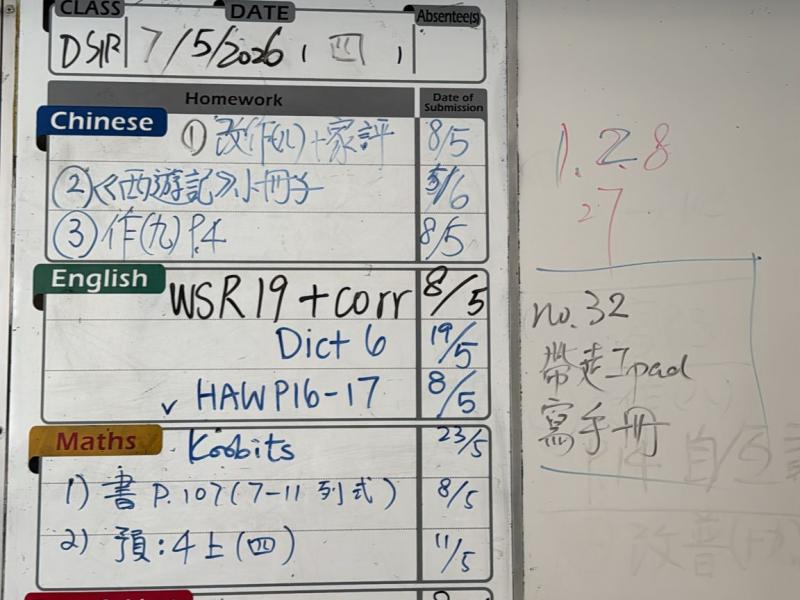 CLASS DATE Absentee(s)
7/5/2026 (四)
Homework Date of Submission
Chinese ① 改作(八)+家評 8/5
② 《西遊記》小冊子 5/6
③ 作(九) P.4 8/5
English WSR 19 + corr 8/5
Dict 6 19/5
✓ HAWP16-17 8/5
Maths Koobits 23/5
1) 書 P.107 (7-11 列式) 8/5
2) 預:4上(四) 11/5
1. 2. 8
27
no. 32
帶走Ipad
寫手冊